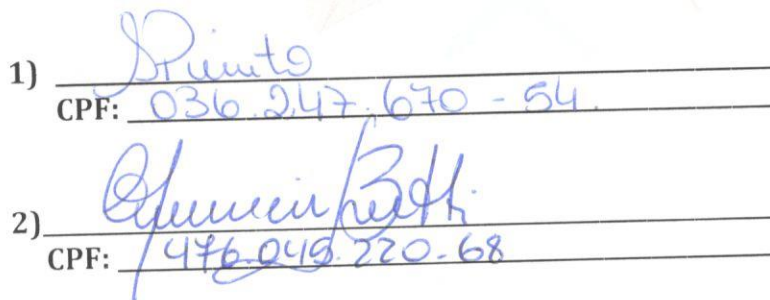 1)
CPF: 036.247.670-54.
2)
CPF: 476.049.220-68